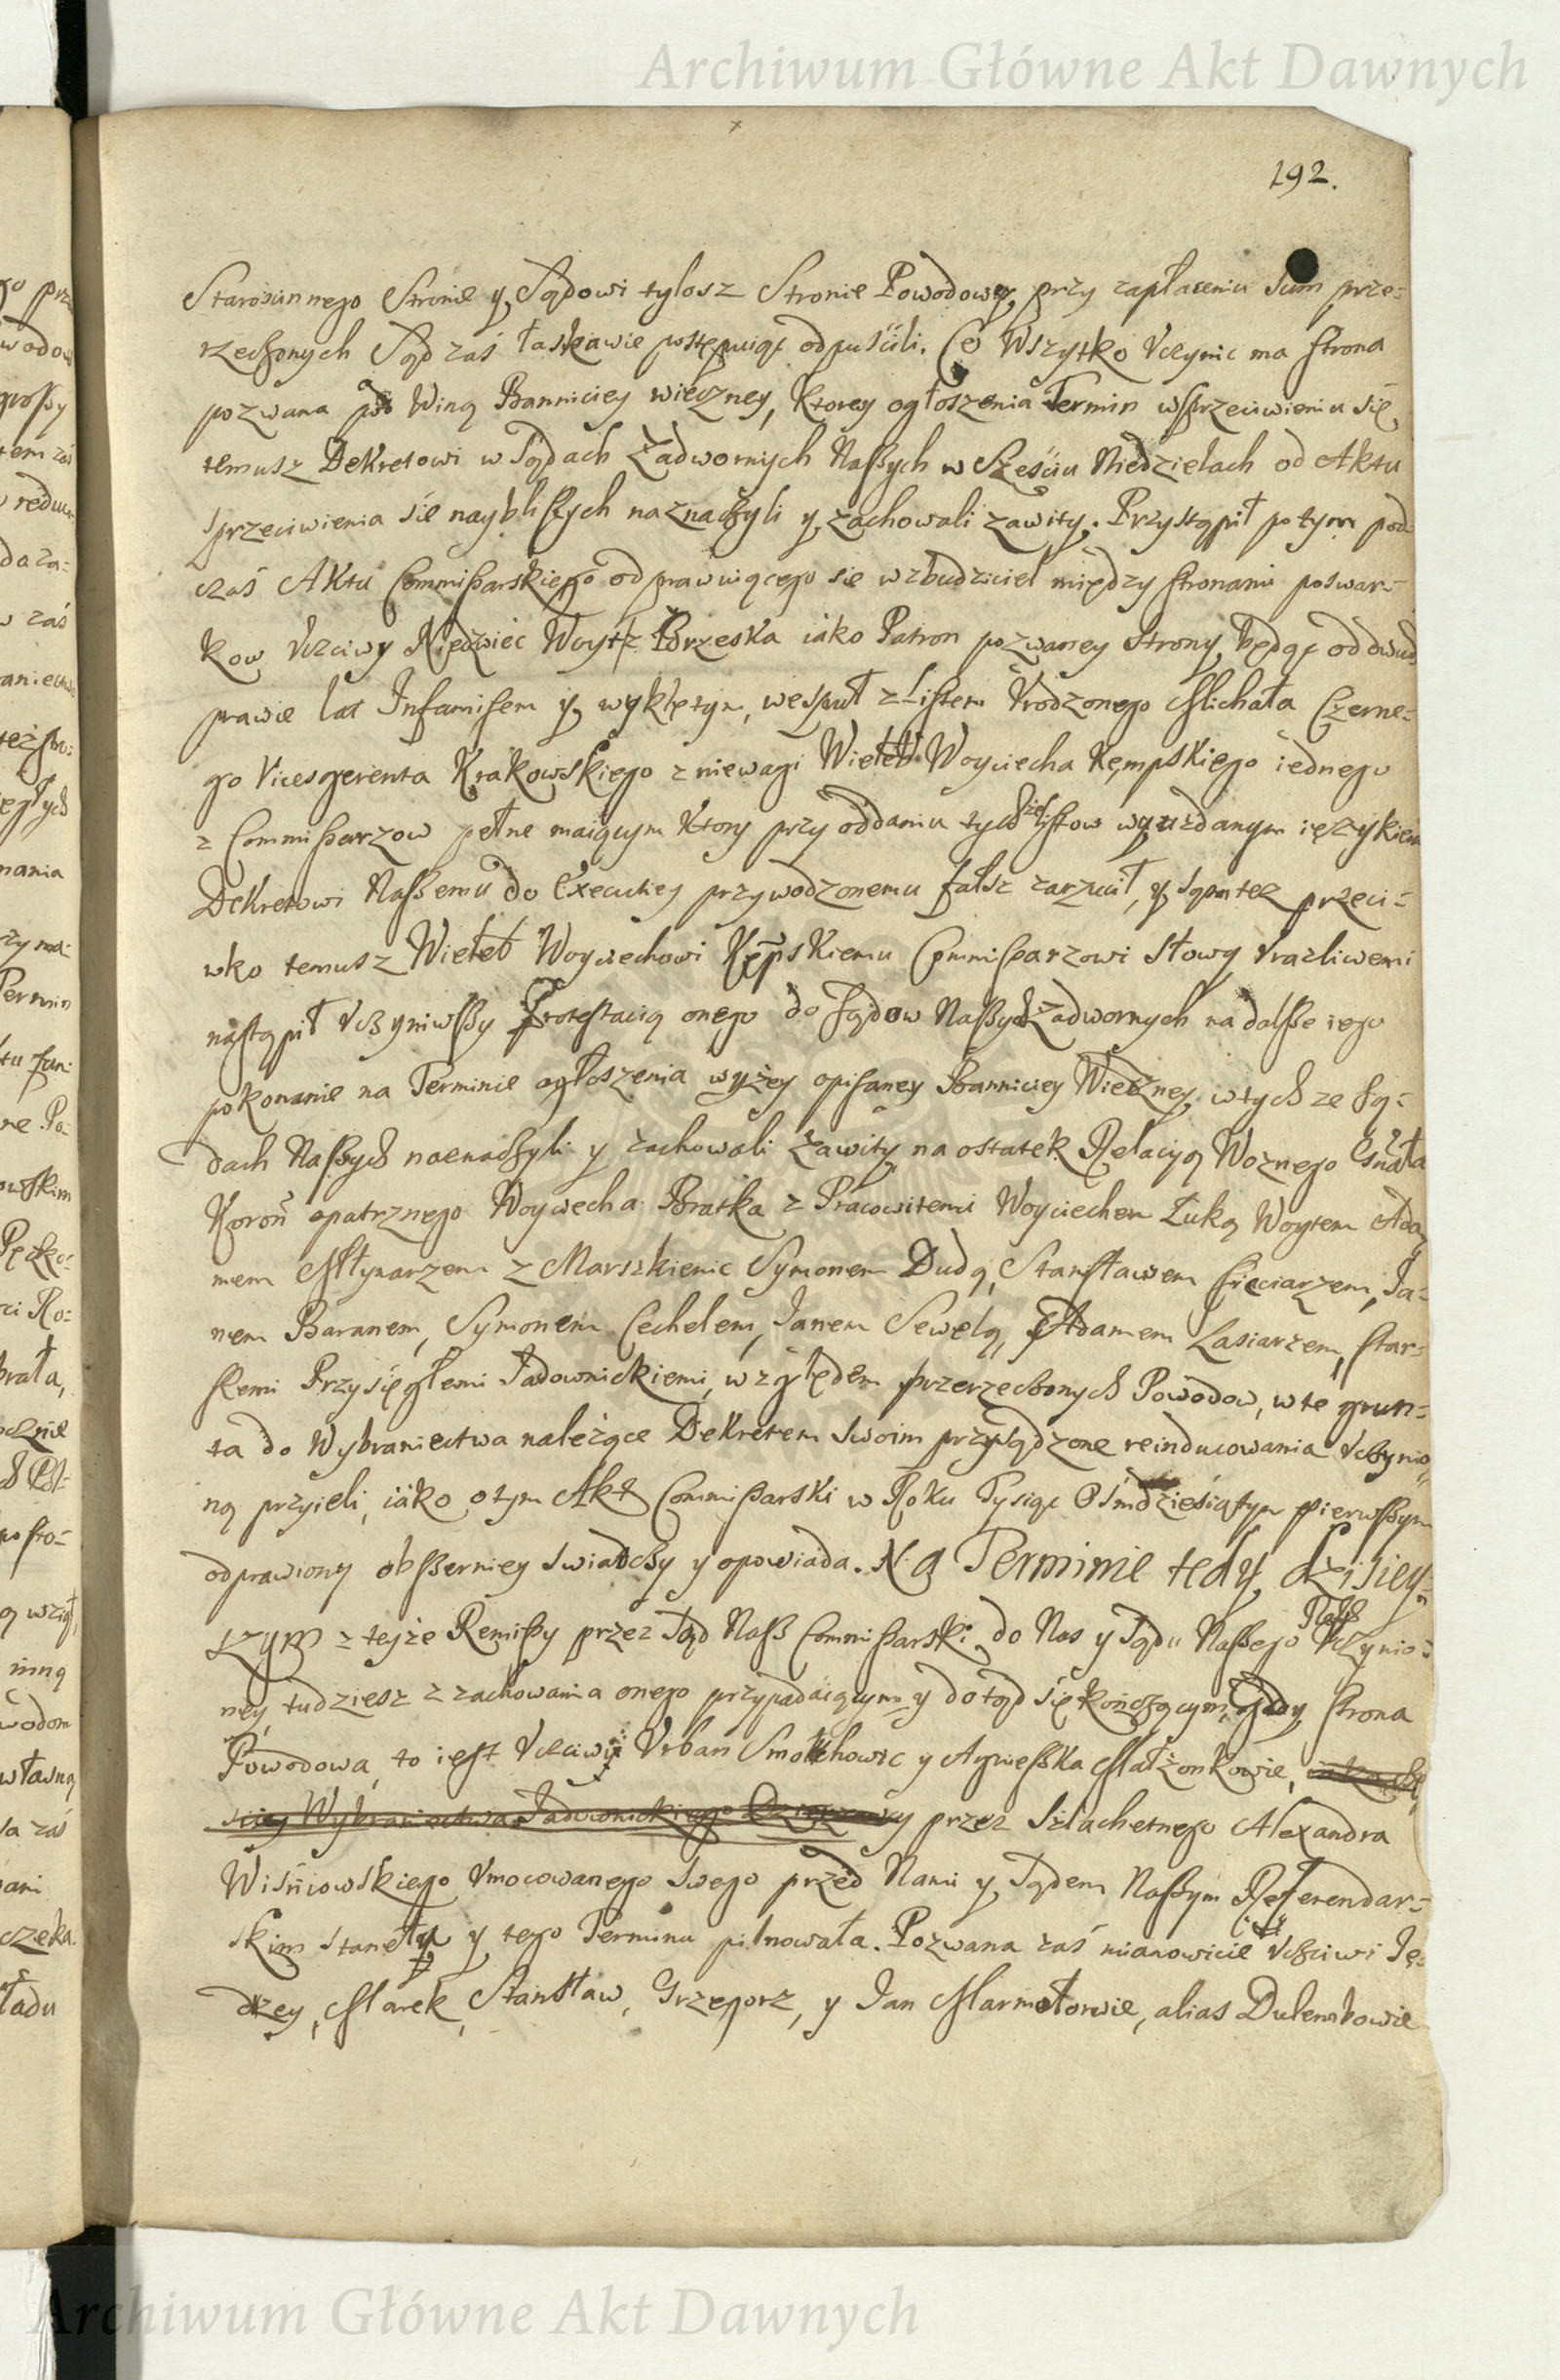 Archiwum Główne Akt Dawnych
192.
Starościnnego Stronie y Sądowi tylosz Stronie Powodowey przy zapłaceniu Sum prze-
rzeczonych Sąd zaś łaskawie postępuiąc odpuścili. Co Wszytko Vczynic ma strona
pozwana pod Winą Banniciey wieczney, Ktorey ogłoszenia Termin w sprzeciwieniu się
temusz Dekretowi w Sądach Zadwornych Naßych w Sześciu Niedzielach od Aktu
sprzeciwienia się naybliszych naznaczyli y zachowali zawity. Przystąpił potym pod-
czas Aktu Commißarskiego odprawuiącego się wzbudziciel między stronami poswar-
kow Vczciwy Niedzwiec Woyt z Brzeska iako Patron pozwaney strony, będąc od dwuch
prawie lat Infamisem y wyklętym, wespuł z listem Vrodzonego Michała Czerne-
go Vicesgerenta Krakowskiego z niewagi Wieleb Woyciecha Kempskiego iednego
z Commißarzow pełne maiącym Ktory przy oddaniu tychże listow wyuzdanym ięzykiem
Dekretowi Naßemu do Executiey przywodzonemu fałsz zarzucił, y sam tez przeci-
wko temusz Wieleb Woyciechowi Kępskiemu Commißarzowi słowy Vrazliwemi
nastąpił Vczyniwßy Protestacią onego do Sądow Naßych Zadwornych na dalße iego
pokonanie na Terminie ogłoszenia wyżey opisaney Banniciey Wieczney w tychze Są-
dach Naßych naznaczyli y zachowali zawity na ostatek Relacyą Woznego Gnāła
Koroñ opatrznego Woyciecha Bratka z Pracowitemi Woyciechem Zuką Woytem Ada-
mem Młynarzem z Marszkienic Symonem Dudą, Stanisławem Sieciarzem, Ja-
nem Baranem, Symonem Cechelem, Janem Sewelą, Adamem Lasiarzem, star-
ßemi Przysięgłemi Jadownickiemi, względem przerzeczonych Powodow, w te grun-
ta do Wybraniectwa należące Dekretem Swoim przysądzone reinducowania Vczynio-
ną przyieli, iako o tym Akt Commißarski w Roku Tysiąc Ośmdziesiątym pierwßym
odprawiony obßerniey swiadczy y opowiada. Na Terminie tedy dzisiey-
szym z teyże Remißy przez Sąd Naß Commißarski do Nas y Sądu Naßego Vczynio-
ney, tudziesz z zachowania onego przypadaiącym y dotąd się kończącym, Gdy strona
Powodowa, to iest Vczciwi Vrban Smolchowic y Agnießka Małżonkowie,
Wybraniectwa Jadownickiego Dzierzawy przez Szlachetnego Alexandra
Wiśniowskiego Vmocowanego Swego przed Nami y Sądem Naßym Referendar-
skim Stanęły y tego Terminu pilnowała. Pozwana zaś mianowicie Vczciwi Ję-
drzey, Marek, Stanisław, Grzegorz, y Jan Marmołowie, alias Dulembowie
Archiwum Główne Akt Dawnych